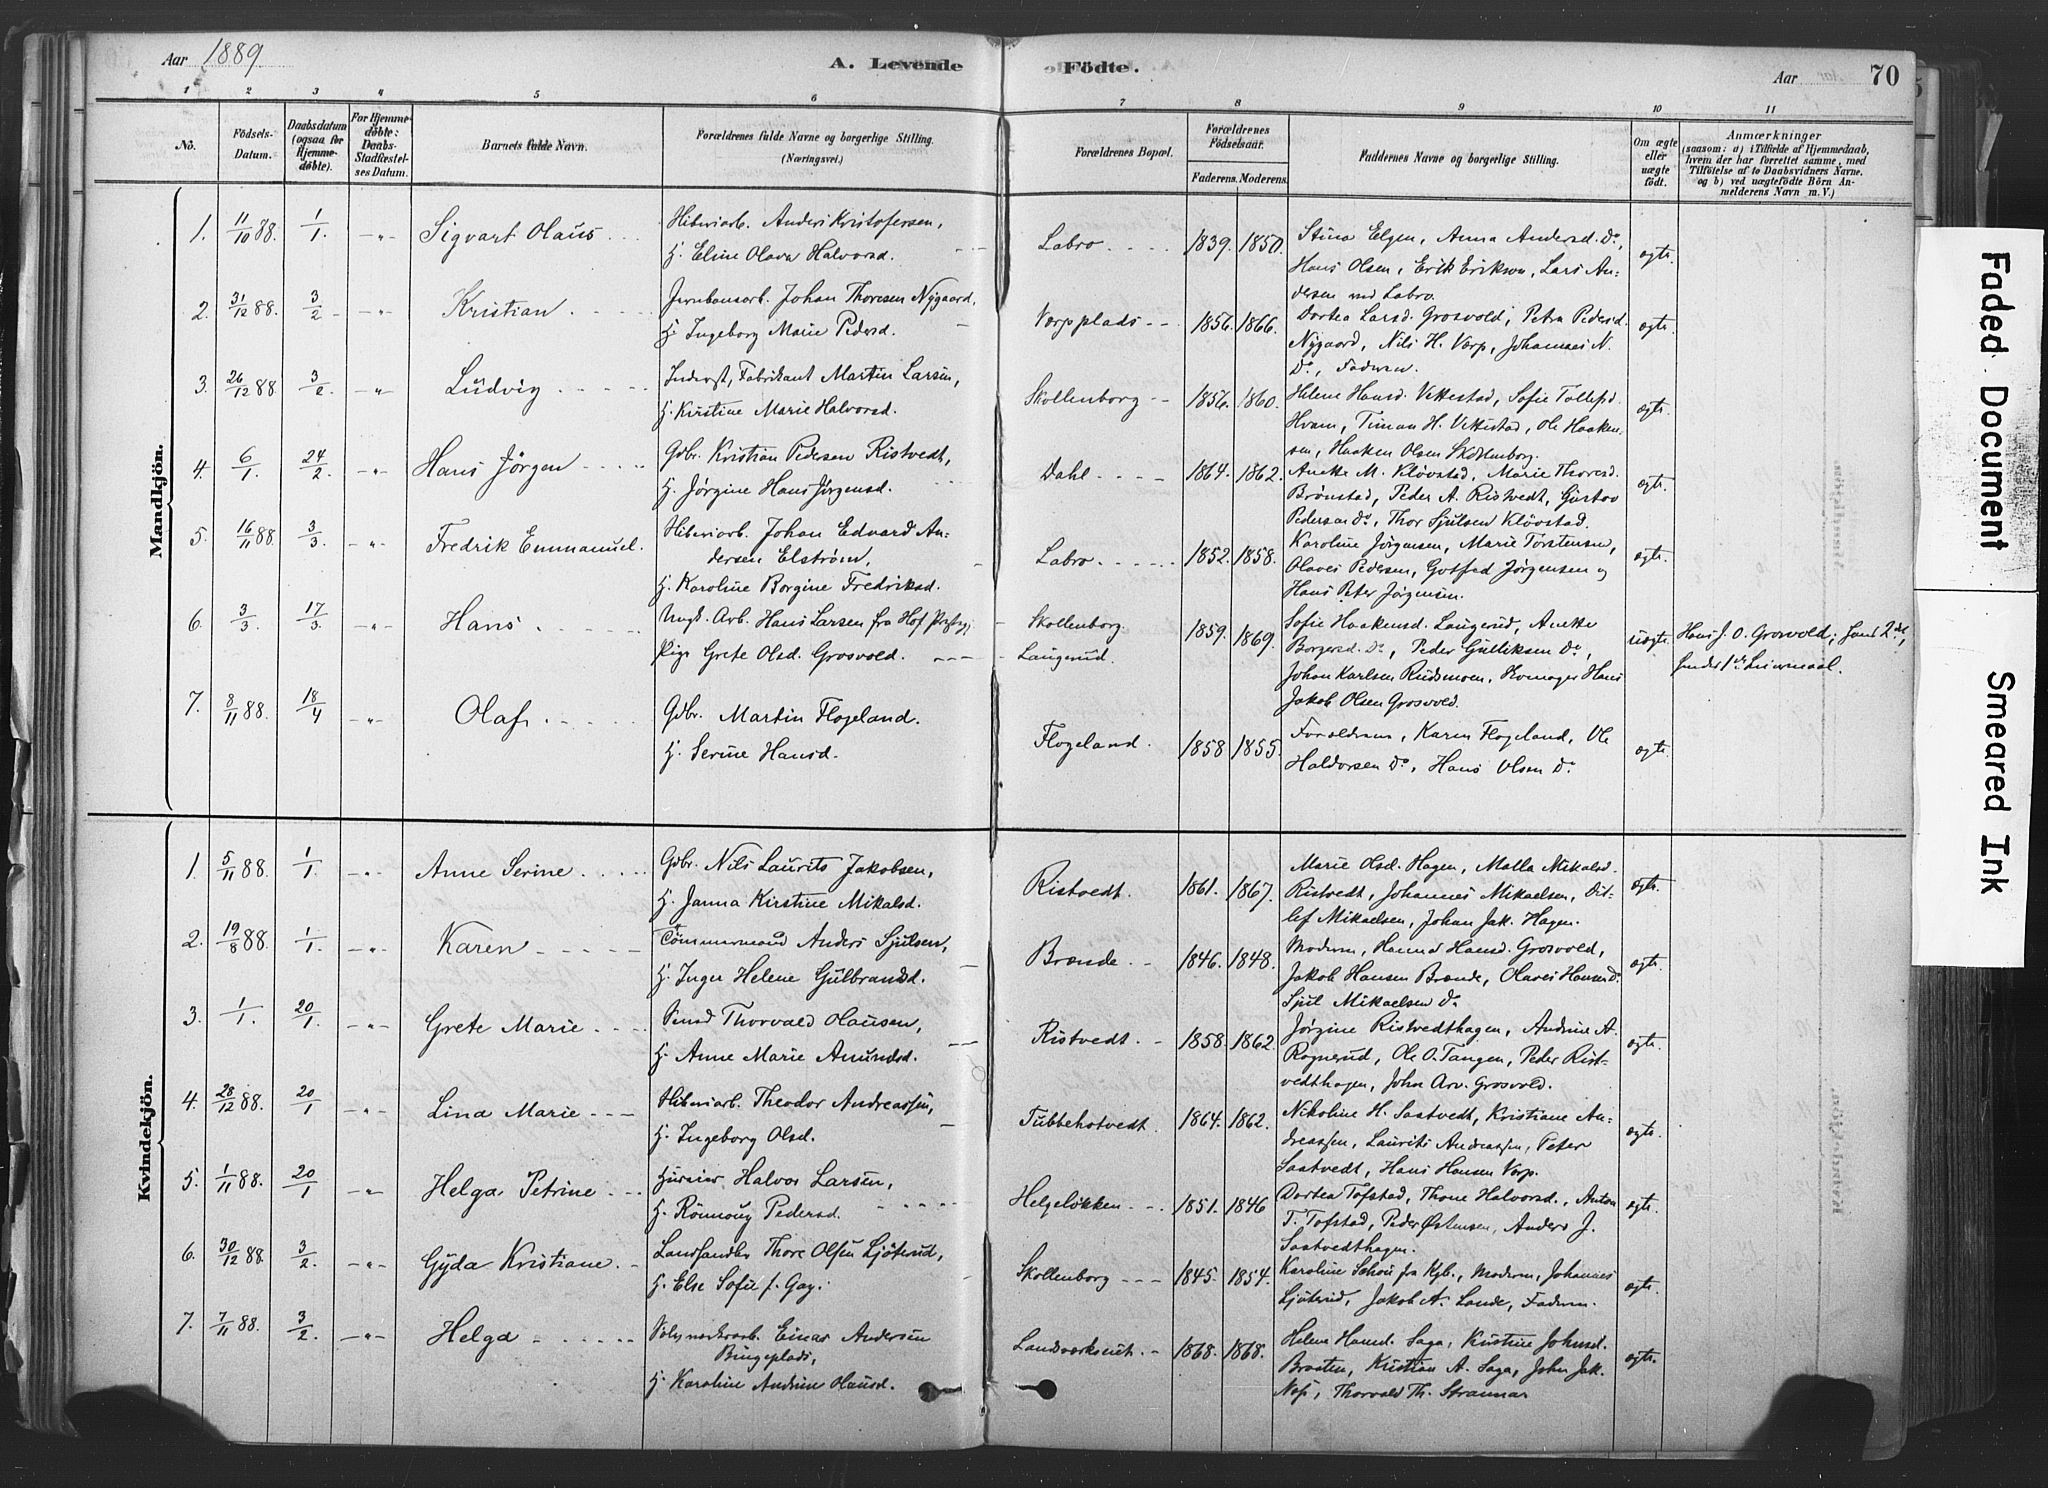 Aar 1889.
A. Levende Födte.
Aar 70
1 2 3 4 5 6 7 8 9 10 11
No.
Födsels-Datum.
Daabsdatum (ogsaa for Hjemmedöbte).
For Hjemmedöbte: Daabs-Stadfæstelses Datum.
Barnets fulde Navn.
Forældrenes fulde Navne og borgerlige Stilling. (Næringsvei.)
Forældrenes Bopæl.
Forældrenes Födselsaar.
Faderens. Moderens.
Faddernes Navne og borgerlige Stilling.
Om ægte eller uægte födt.
Anmærkninger
(saasom: a) i Tilfælde af Hjemmedaab, hvem der har forrettet samme, med Tilföielse af to Daabsvidners Navne. og b) ved uægtefödte Börn Anmelderens Navn m. V.)
Mandkjön.
1. 11/10 88. 1/1 -"- Sigvart Olaus. Anders Kristofersen,
H. Eline Olava Halvorsd. Labro. 1839. 1850. Stina Elgen, Anna Andersd. Do,
Hans Olsen, Erik Erikson, Lars An-
dersen ved Labro. ægte.
2. 31/12 88. 3/2 -"- Kristian Jernbanearb. Johan Thoresen Nygaard,
H. Ingeborg Marie Pedersd. Værpplads 1856. 1866. Dortea Larsd. Grosvold, Petra Pedersd.
Nygaard, Nils H. Værp, Johannes N.
Do, Faderen. ægte.
3. 26/12 88. 3/2 -"- Ludvig Inderst, Fabrikant Martin Larsen,
H. Kirstine Marie Halvorsd. Skollenborg 1856. 1860. Helene Hansd. Vittestad, Sofie Tollefsd.
Hvam, Timan H. Vittestad, Ole Haaken-
sen, Haaken Olsen Skollenborg. ægte.
4. 6/1. 24/2 -"- Hans Jörgen Gdbr. Kristian Pedersen Ristvedt,
H. Jörgine Hans Jörgensd. Dahl 1864. 1862. Anette M. Klövstad, Marie Thoresd.
Brönstad, Peder A. Ristvedt, Gustav
Pedersen Do, Thor Sjulsen Klövstad. ægte.
5. 16/11 88. 3/3 -"- Fredrik Emmanuel. Johan Edvard An-
dersen Elström,
H. Karoline Borgine Fredriksd. Labro 1852. 1858. Karoline Jörgensen, Marie Torstensen,
Olaves Pedersen, Gotfred Jörgensen og
Hans Peter Jörgensen. ægte.
6. 3/3. 17/3. -"- Hans Ungk. Arb. Hans Larsen fra Hof
Pige Grete Olsd. Grosvold. Skollenborg.
Laugerud. 1859. 1869. Sofie Haakensd. Laugerud, Anette
Borgersd. Do, Peder Gulliksen Do,
Johan Karlsen Rudsmoen, Hans
Jakob Olsen Grosvold. uægte. Hans J. O. Grosvold; hans 2det,
hendes 1ste Leiermaal.
7. 8/11 88. 18/4 -"- Olaf Gdbr. Martin Flogeland.
H. Serine Hansd. Flogeland. 1858 1855. Forældrene, Karen Flogeland, Ole
Haldorsen Do, Hans Olsen Do. ægte.
Kvindekjön.
1. 5/11 88. 1/1. -"- Anne Serine Gdbr. Nils Laurits Jakobsen,
H. Janna Kirstine Mikalsd. Ristvedt. 1861. 1867. Marie Olsd. Hagen, Malla Mikalsd.
Ristvedt, Johannes Mikaelsen, Dit-
lef Mikaelsen, Johan Jak. Hagen. ægte.
2. 19/8 88. 1/1. -"- Karen Tömmermand Anders Sjulsen,
H. Inger Helene Gulbrandsd. Brænde 1846. 1848. Moderen, Hanna Hansd. Grosvold,
Jakob Hansen Brænde, Olaves Hansen Do
Sjul Mikaelsen Do ægte.
3. 1/1. 20/1 -"- Grete Marie Thorvald Olausen,
H. Anne Marie Amundsd. Ristvedt. 1858. 1862. Jörgine Ristvedthagen, Andrine A.
Rognerud, Ole O. Tangen, Peder Rist-
vedthagen, John Arv. Grosvold. ægte.
4. 28/12 88. 20/1 -"- Lina Marie Theodor Andreassen,
H. Ingeborg Olsd. Tubbehotvedt. 1864. 1862. Nikoline H. Saatvedt, Kristiane An-
dreassen, Laurits Andreassen, Peter
Saatvedt, Hans Hansen Værp. ægte.
5. 1/11 88. 20/1 -"- Helga Petrine Huseier Halvor Larsen,
H. Rönnoug Pedersd. Helgelökken 1851. 1846 Dortea Tofstad, Thone Halvorsd., Anton
T. Tofstad, Peder Østensen, Anders J.
Saatvedthagen. ægte.
6. 30/12 88. 3/2 -"- Gyda Kristiane Landhandler Thore Olsen Ljöterud,
H. Else Sofie f. Gay. Skollenborg 1845. 1854. Karoline Schou fra Kgb., Moderen, Johannes
Ljöterud, Jakob A. Lande, Faderen. ægte.
7. 7/11 88. 3/2 -"- Helga Einar Andersen
Bingeplads,
H. Karoline Andrine Olausd. 1868. 1868. Helene Hansd. Saga, Kirstine Johnsd.
Braaten, Kristian A. Saga, John Jak.
Næs, Thorvald Th. Strannar ægte.
Faded Document
Smeared Ink